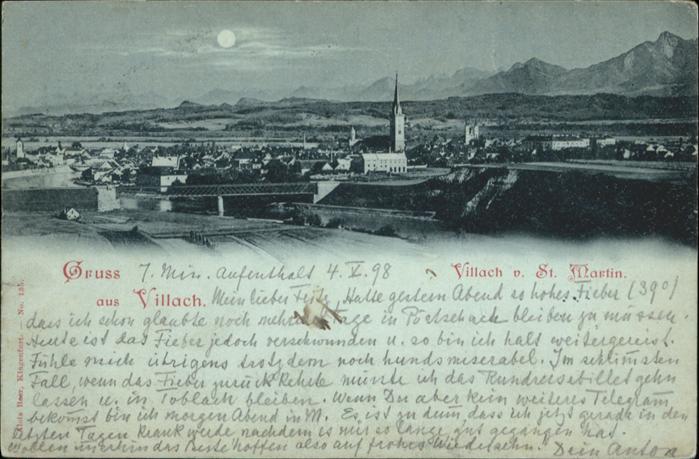 Gruss 7. Min. Aufenthalt 4. V. 98 Villach v. St. Martin.
aus Villach. Mein lieber Fritz, Hatte gestern Abend so hohes Fieber (39°)
dass ich schon glaubte noch mehrere Tage in Pörtschach bleiben zu müssen.
Heute ist das Fieber jedoch verschwunden u. so bin ich halt weitergereist.
Fühle mich übrigens trotzdem noch hundsmiserabel. Im schlimsten
Fall, wenn das Fieber zurück kehrte müsste ich das Rundreisebillet gehn
lassen u. in Toblach bleiben. Wenn Du aber kein weiteres Telegram
bekomst bin ich morgen Abend in M. Es ist zu dumm, dass ich jetzt gerade in den
letzten Tagen krank werde nachdem es mir so lange gut gegangen hat.
Wollen das Beste hoffen also auf frohes Wiedersehn. Dein Anton
Alois Beer, Klagenfurt. – No. 135.